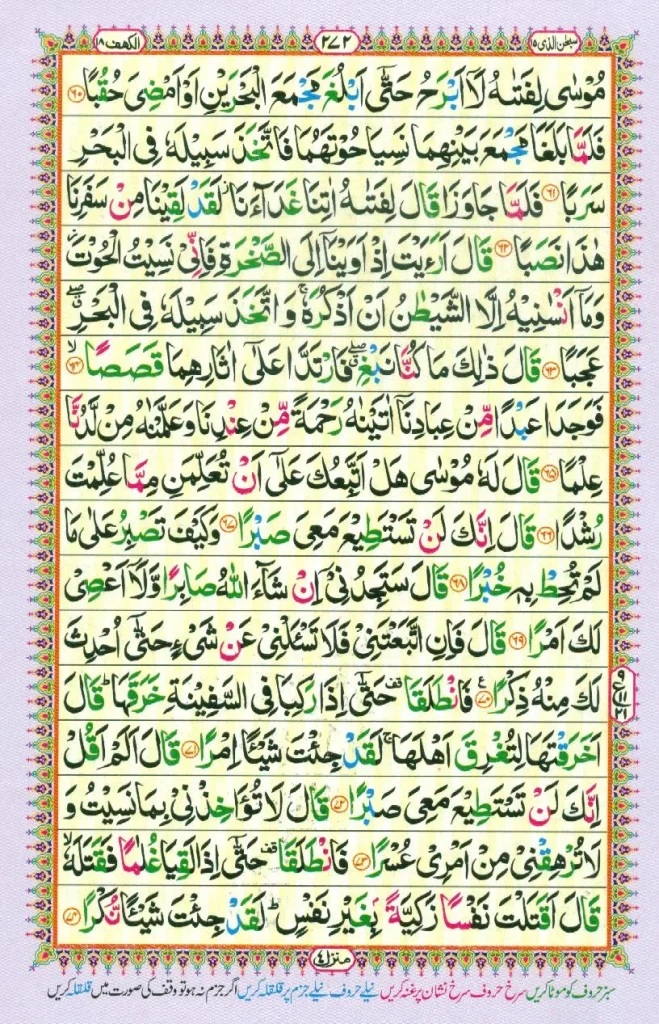 سبحٰن الذی ۱۵
۲۷۲
الکھف ۱۸
مُوْسٰى لِفَتٰىهُ لَاۤ اَبْرَحُ حَتّٰۤى اَبْلُغَ مَجْمَعَ الْبَحْرَيْنِ اَوْ اَمْضِىَ حُقُبًا ﴿۶۰﴾
فَلَمَّا بَلَغَا مَجْمَعَ بَيْنِهِمَا نَسِيَا حُوْتَهُمَا فَاتَّخَذَ سَبِيْلَهٗ فِى الْبَحْرِ
سَرَبًا ﴿۶۱﴾ فَلَمَّا جَاوَزَا قَالَ لِفَتٰىهُ اٰتِنَا غَدَآءَنَا ۫ لَقَدْ لَقِيْنَا مِنْ سَفَرِنَا
هٰذَا نَصَبًا ﴿۶۲﴾ قَالَ اَرَءَيْتَ اِذْ اَوَيْنَاۤ اِلَى الصَّخْرَةِ فَاِنِّىْ نَسِيْتُ الْحُوْتَ ۫
وَمَاۤ اَنْسٰنِيْهُ اِلَّا الشَّيْطٰنُ اَنْ اَذْكُرَهٗ ۚ وَ اتَّخَذَ سَبِيْلَهٗ فِى الْبَحْرِ ۖ ۗ
عَجَبًا ﴿۶۳﴾ قَالَ ذٰلِكَ مَا كُنَّا نَبْغِ ۖ ۗ فَارْتَدَّا عَلٰۤى اٰثَارِهِمَا قَصَصًا ۙ ﴿۶۴﴾
فَوَجَدَا عَبْدًا مِّنْ عِبَادِنَاۤ اٰتَيْنٰهُ رَحْمَةً مِّنْ عِنْدِنَا وَعَلَّمْنٰهُ مِنْ لَّدُنَّا
عِلْمًا ﴿۶۵﴾ قَالَ لَهٗ مُوْسٰى هَلْ اَتَّبِعُكَ عَلٰۤى اَنْ تُعَلِّمَنِ مِمَّا عُلِّمْتَ
رُشْدًا ﴿۶۶﴾ قَالَ اِنَّكَ لَنْ تَسْتَطِيْعَ مَعِىَ صَبْرًا ﴿۶۷﴾ وَكَيْفَ تَصْبِرُ عَلٰى مَا
لَمْ تُحِطْ بِهٖ خُبْرًا ﴿۶۸﴾ قَالَ سَتَجِدُنِىْۤ اِنْ شَآءَ اللّٰهُ صَابِرًا وَّلَاۤ اَعْصِىْ
لَكَ اَمْرًا ﴿۶۹﴾ قَالَ فَاِنِ اتَّبَعْتَنِىْ فَلَا تَسْئَلْنِىْ عَنْ شَىْءٍ حَتّٰۤى اُحْدِثَ
لَكَ مِنْهُ ذِكْرًا ﴿۷۰﴾ ع فَانْطَلَقَا ۥ حَتّٰۤى اِذَا رَكِبَا فِى السَّفِيْنَةِ خَرَقَهَا ؕ قَالَ
اَخَرَقْتَهَا لِتُغْرِقَ اَهْلَهَا ۚ لَقَدْ جِئْتَ شَيْئًا اِمْرًا ﴿۷۱﴾ قَالَ اَلَمْ اَقُلْ
اِنَّكَ لَنْ تَسْتَطِيْعَ مَعِىَ صَبْرًا ﴿۷۲﴾ قَالَ لَا تُؤَاخِذْنِىْ بِمَا نَسِيْتُ وَ
لَا تُرْهِقْنِىْ مِنْ اَمْرِىْ عُسْرًا ﴿۷۳﴾ فَانْطَلَقَا ۥ حَتّٰۤى اِذَا لَقِيَا غُلٰمًا فَقَتَلَهٗ ۙ
قَالَ اَقَتَلْتَ نَفْسًا زَكِيَّةًۢ بِغَيْرِ نَفْسٍ ؕ لَقَدْ جِئْتَ شَيْئًا نُّكْرًا ﴿۷۴﴾
۹
ع ۱۱
۲۱
منزل ۴
سبز حروف کو موٹا کریں سرخ حروف سرخ نشان پر غنہ کریں نیلے حروف نیلے جزم پر قلقلہ کریں اگر جزم نہ ہو تو وقف کی صورت میں قلقلہ کریں